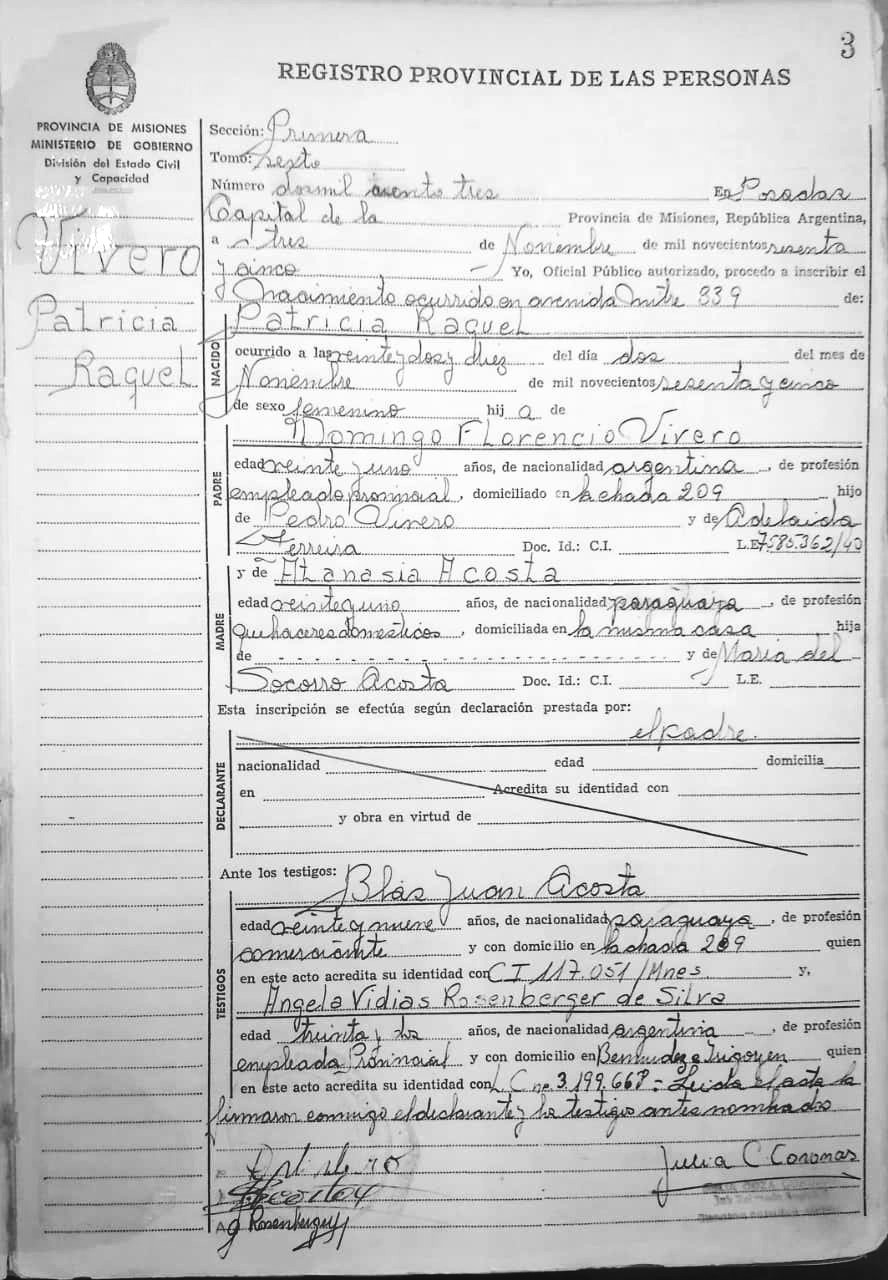 3
REGISTRO PROVINCIAL DE LAS PERSONAS
PROVINCIA DE MISIONES
MINISTERIO DE GOBIERNO
División del Estado Civil
y Capacidad
Vivero
Patricia
Raquel
Sección: Primera
Tomo: sexto
Número dosmil ciento tres En Posadas
Capital de la Provincia de Misiones, República Argentina,
a tres de Noviembre de mil novecientos sesenta
y cinco Yo, Oficial Público autorizado, procedo a inscribir el
Nacimiento ocurrido en avenida Mitre 339 de:
NACIDO
Patricia Raquel
ocurrido a las veinte y dos y diez del día dos del mes de
Noviembre de mil novecientos sesenta y cinco
de sexo femenino hij a de
PADRE
Domingo Florencio Vivero
edad veinte y uno años, de nacionalidad argentina, de profesión
empleado provincial, domiciliado en la chada 209 hijo
de Pedro Vivero y de Adelaida
Ferreira Doc. Id.: C.I. L.E. 7585.362/40
MADRE
y de Atanasia Acosta
edad veinte y uno años, de nacionalidad paraguaya, de profesión
quehaceres domesticos, domiciliada en la misma casa hija
de - - - - - - - - - - - - - - - - - - - - y de Maria del
Socorro Acosta Doc. Id.: C.I. L.E.
Esta inscripción se efectúa según declaración prestada por:
el padre.
DECLARANTE
nacionalidad edad domicilia
en Acredita su identidad con
y obra en virtud de
Ante los testigos: Blás Juan Acosta
TESTIGOS
edad veinte y nueve años, de nacionalidad paraguaya, de profesión
comerciante y con domicilio en la chada 209 quien
en este acto acredita su identidad con C I 117.051/Mnes y,
Angela Vidias Rosenberger de Silva
edad treinta y dos años, de nacionalidad argentina, de profesión
empleada Provincial y con domicilio en Bermudez e Irigoyen quien
en este acto acredita su identidad con L.C nº 3.199.667 = Leida el acta la
firmaron conmigo el declarante y los testigos antes nombrados
Julia C Coronas
Acosta
A Rosenberger